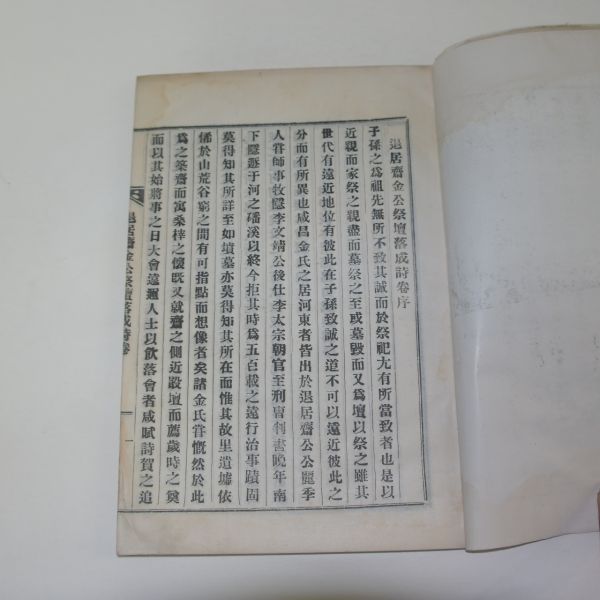 退居齋金公祭壇落成詩卷序
子孫之爲祖先無所不致其誠而於祭祀尤有所當致者也是以
近親而家祭之親盡而墓祭之至或墓毀而又爲壇以祭之雖其
世代有遠近地位有彼此在子孫致誠之道不可以遠近彼此之
分而有所異也咸昌金氏之居河東者皆出於退居齋公公麗季
人甞師事牧隱李文靖公後仕李太宗朝官至刑曺判書晩年南
下隱遯于河之磻溪以終今拒其時爲五百載之遠行治事蹟固
莫得知其所詳至如墳墓亦莫得知其所在而惟其故里遺墟依
俙於山荒谷窮之間有可指點而想像者矣諸金氏甞慨然於此
爲之築齋而寓桑梓之懷旣又就齋之側近設壇而薦歲時之奠
而以其始將事之日大會遠邇人士以飮落會者咸賦詩賀之追
退居齋金公祭壇落成詩卷
一